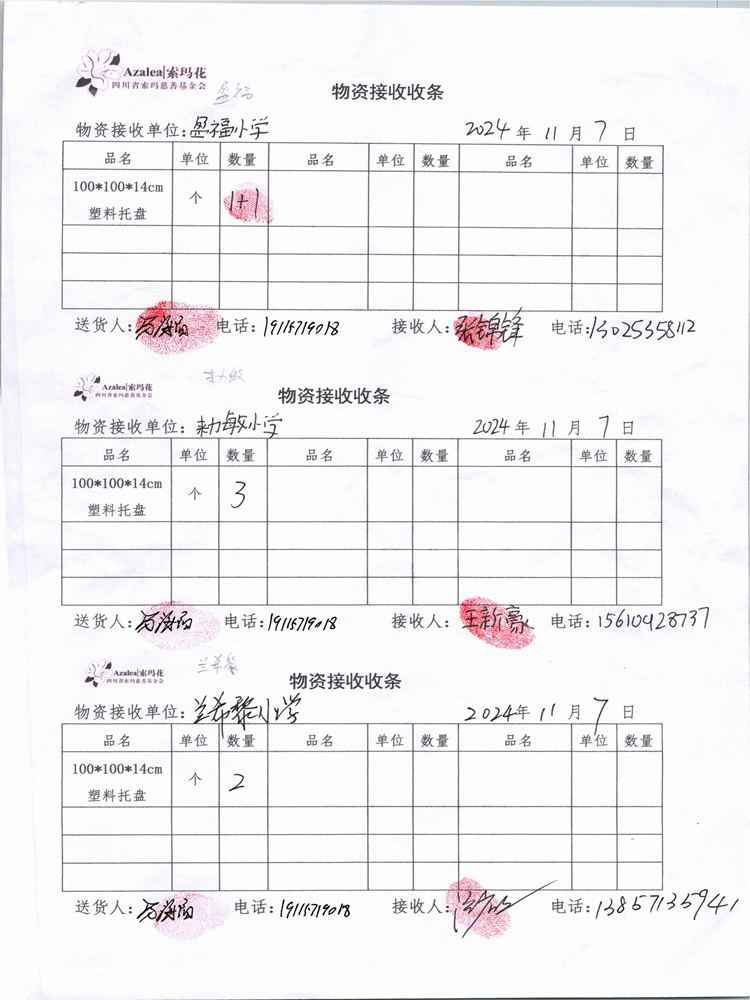 Azalea|索玛花
四川省索玛慈善基金会
盈福
物资接收收条
物资接收单位:盈福小学 2024 年 11 月 7 日
品名 单位 数量 品名 单位 数量 品名 单位 数量
100*100*14cm
塑料托盘 个 1+1
送货人: 电话:19115719018 接收人:张锦锋 电话:13025358112
Azalea|索玛花
四川省索玛慈善基金会
物资接收收条
物资接收单位: 敏小学 2024 年 11 月 7 日
品名 单位 数量 品名 单位 数量 品名 单位 数量
100*100*14cm
塑料托盘 个 3
送货人: 电话:19115719018 接收人:王新豪 电话:15610428737
Azalea|索玛花
四川省索玛慈善基金会
兰希黎
物资接收收条
物资接收单位:兰希黎小学 2024年 11 月 7 日
品名 单位 数量 品名 单位 数量 品名 单位 数量
100*100*14cm
塑料托盘 个 2
送货人: 电话:19115719018 接收人: 电话:13857135941